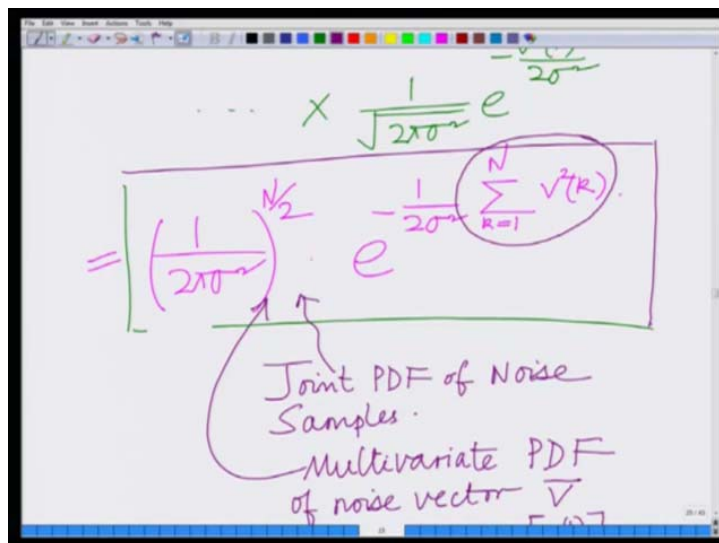 File Edit View Insert Actions Tools Help
.... × 1/√(2πσ²) e^(-v²(N)/2σ²)
= (1/2πσ²)^(N/2) · e^(-1/2σ² ∑_(k=1)^N v²(k)).
Joint PDF of Noise
Samples.
Multivariate PDF
of noise vector V̅